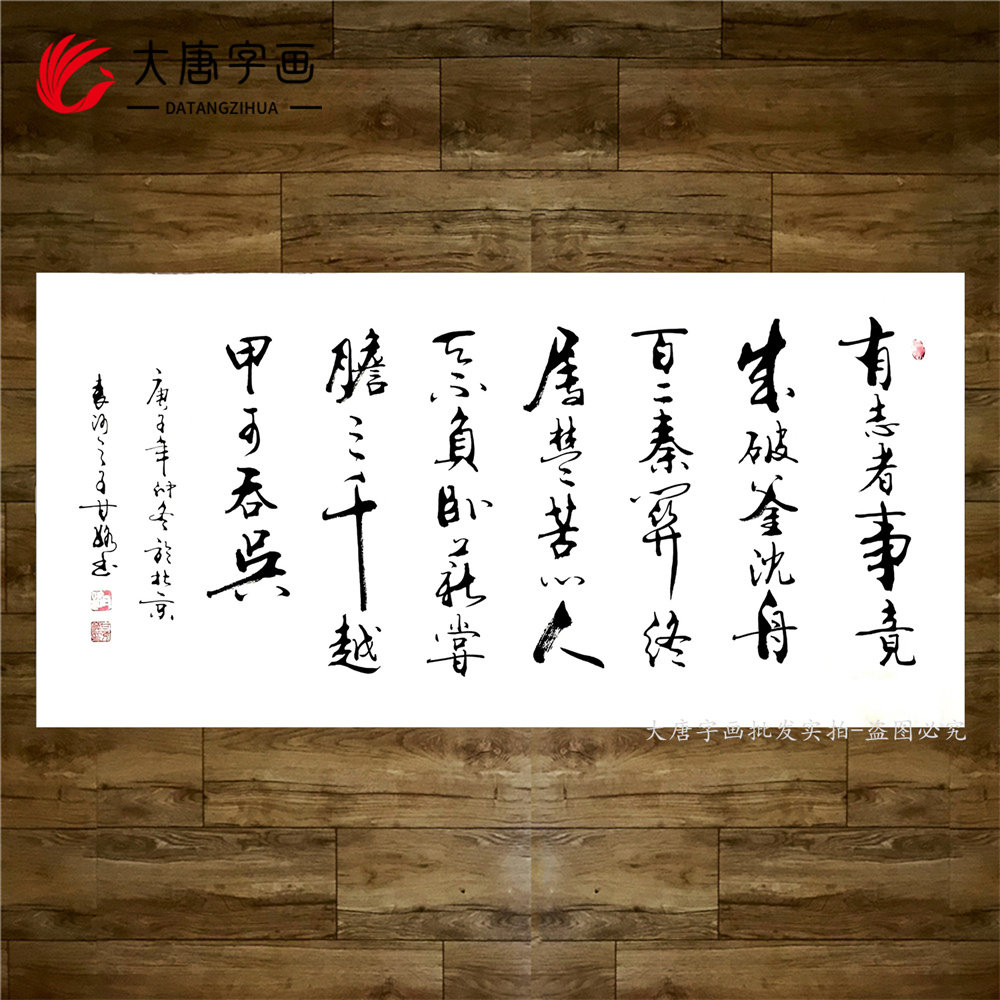 大唐字画
DATANGZIHUA
有志者事竟
成破釜沈舟
百二秦關終
屬楚苦心人
天不負卧薪嘗
膽三千越
甲可吞吳
庚子年仲冬於北京
之子甘书
大唐字画批发实拍-盗图必究